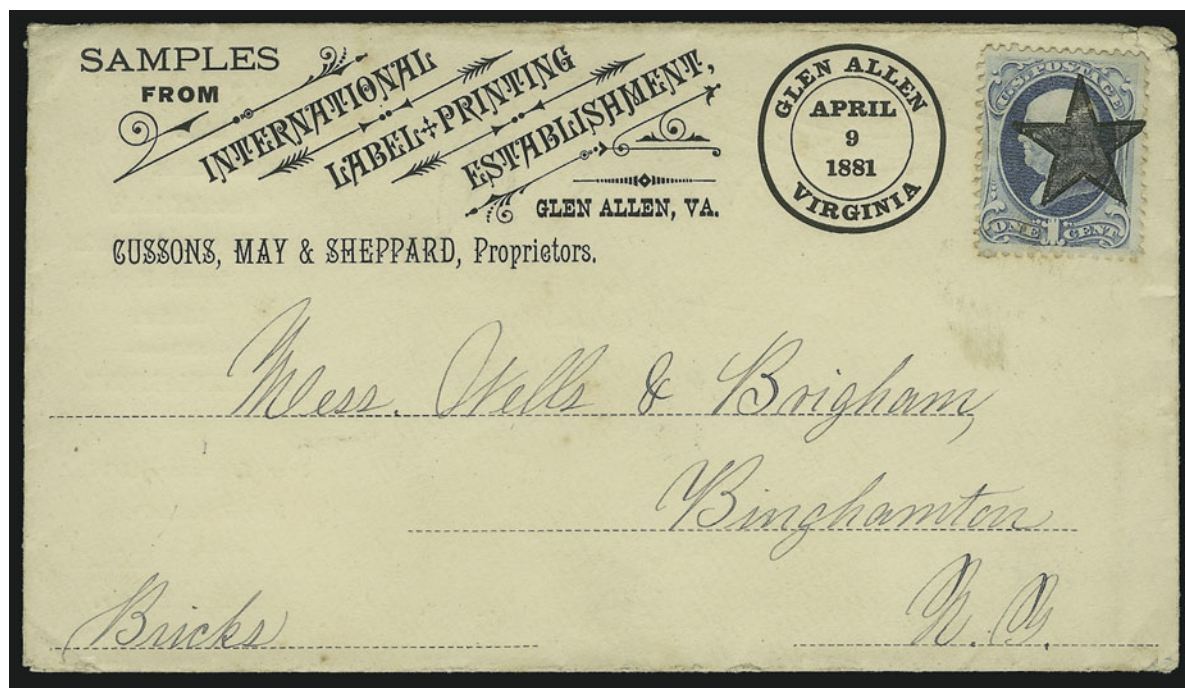 SAMPLES
FROM
INTERNATIONAL
LABEL + PRINTING
ESTABLISHMENT,
GLEN ALLEN, VA.
CUSSONS, MAY & SHEPPARD, Proprietors.
GLEN ALLEN
APRIL
9
1881
VIRGINIA
U.S. POSTAGE
ONE 1 CENT
Mess. Wells & Brigham,
Binghamton
N. Y.
Bricks